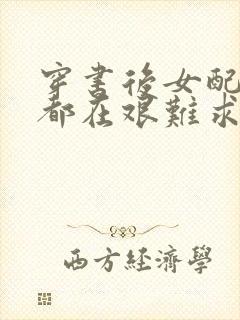 穿書後女配
都在艱難求
西方經濟學